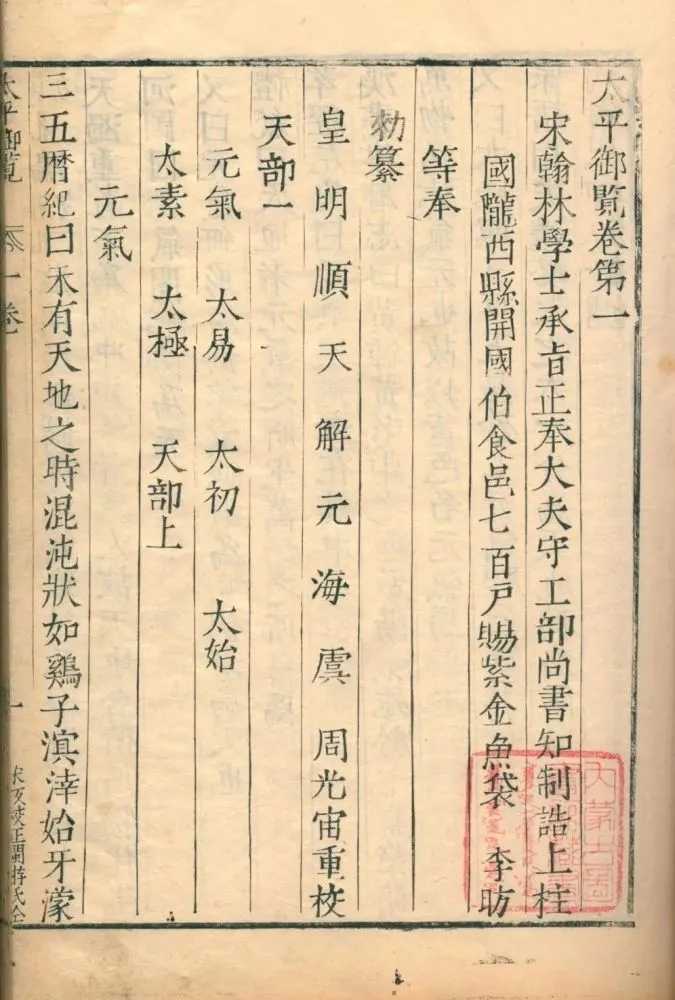 太平御覧卷第一
宋翰林學士承旨正奉大夫守工部尚書知制誥上柱
國隴西縣開國伯食邑七百戸賜紫金魚袋 李昉
等奉
勑纂
皇明順天解元海虞周光宙重校
天部一
元氣 太易 太初 太始
太素 太極 天部上
元氣
三五暦紀曰未有天地之時混沌狀如鷄子溟涬始牙濛
太平御覧 卷一
一
宋板校正閩游氏仝